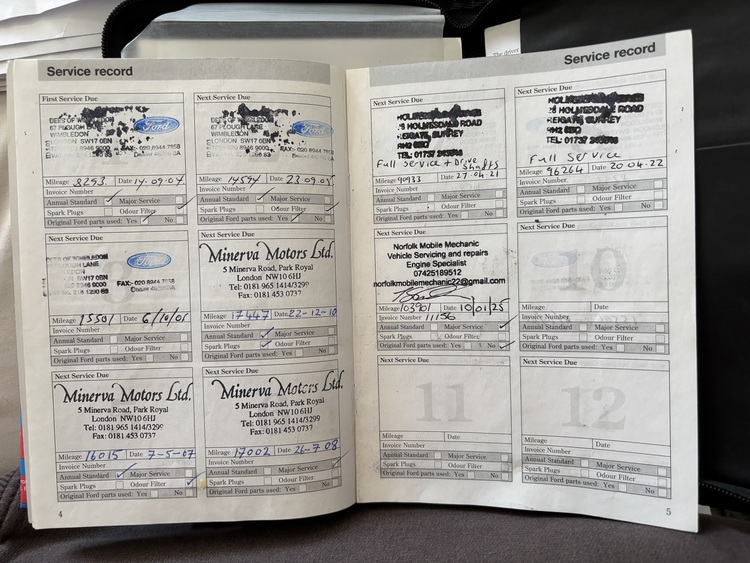 The driver
Service record
First Service Due
67 PLOUGH LANE
WIMBLEDON
LONDON SW17 0BN
020 8946 9000
Ford
020 8944 7858
Mileage 8293 Date 14.09.04
Invoice Number
Annual Standard Major Service
Spark Plugs Odour Filter
Original Ford parts used: Yes No
Next Service Due
67 PLOUGH LANE
WIMBLEDON
LONDON SW17 0BN
020 8946 9000
Ford
FAX:- 020 8944 7858
Mileage 14594 Date 23.09.05
Invoice Number
Annual Standard Major Service
Spark Plugs Odour Filter
Original Ford parts used: Yes No
Next Service Due
DEES OF WIMBLEDON
PLOUGH LANE
SW17 0BN
8946 9000
Ford
FAX:- 020 8944 7858
Mileage 15501 Date 6/10/05
Invoice Number
Annual Standard Major Service
Spark Plugs Odour Filter
Original Ford parts used: Yes No
Next Service Due
Minerva Motors Ltd.
5 Minerva Road, Park Royal
London NW10 6HJ
Tel: 0181 965 1414/3299
Fax: 0181 453 0737
Mileage 17447 Date 22-12-10
Invoice Number
Annual Standard Major Service
Spark Plugs Odour Filter
Original Ford parts used: Yes No
Next Service Due
Minerva Motors Ltd.
5 Minerva Road, Park Royal
London NW10 6HJ
Tel: 0181 965 1414/3299
Fax: 0181 453 0737
Mileage 16015 Date 7-5-07
Invoice Number
Annual Standard Major Service
Spark Plugs Odour Filter
Original Ford parts used: Yes No
Next Service Due
Minerva Motors Ltd.
5 Minerva Road, Park Royal
London NW10 6HJ
Tel: 0181 965 1414/3299
Fax: 0181 453 0737
Mileage 17002 Date 26-7-08
Invoice Number
Annual Standard Major Service
Spark Plugs Odour Filter
Original Ford parts used: Yes No
4
Service record
Next Service Due
HOLMESDALE ROAD
REIGATE, SURREY
RH2 0BQ
TEL: 01737
Full Service + Drive
Shafts
Mileage 90933 Date 27.04.21
Invoice Number
Annual Standard Major Service
Spark Plugs Odour Filter
Original Ford parts used: Yes No
Next Service Due
HOLMESDALE ROAD
REIGATE, SURREY
RH2 0BQ
TEL: 01737
Full Service
Mileage 96264 Date 20.04.22
Invoice Number
Annual Standard Major Service
Spark Plugs Odour Filter
Original Ford parts used: Yes No
Next Service Due
Norfolk Mobile Mechanic
Vehicle Servicing and repairs
Engine Specialist
07425189512
norfolkmobilemechanic22@gmail.com
Mileage 103901 Date 10/01/25
Invoice Number 11156
Annual Standard Major Service
Spark Plugs Odour Filter
Original Ford parts used: Yes No
Next Service Due
10
Mileage Date
Invoice Number
Annual Standard Major Service
Spark Plugs Odour Filter
Original Ford parts used: Yes No
Next Service Due
11
Mileage Date
Invoice Number
Annual Standard Major Service
Spark Plugs Odour Filter
Original Ford parts used: Yes No
Next Service Due
12
Mileage Date
Invoice Number
Annual Standard Major Service
Spark Plugs Odour Filter
Original Ford parts used: Yes No
5